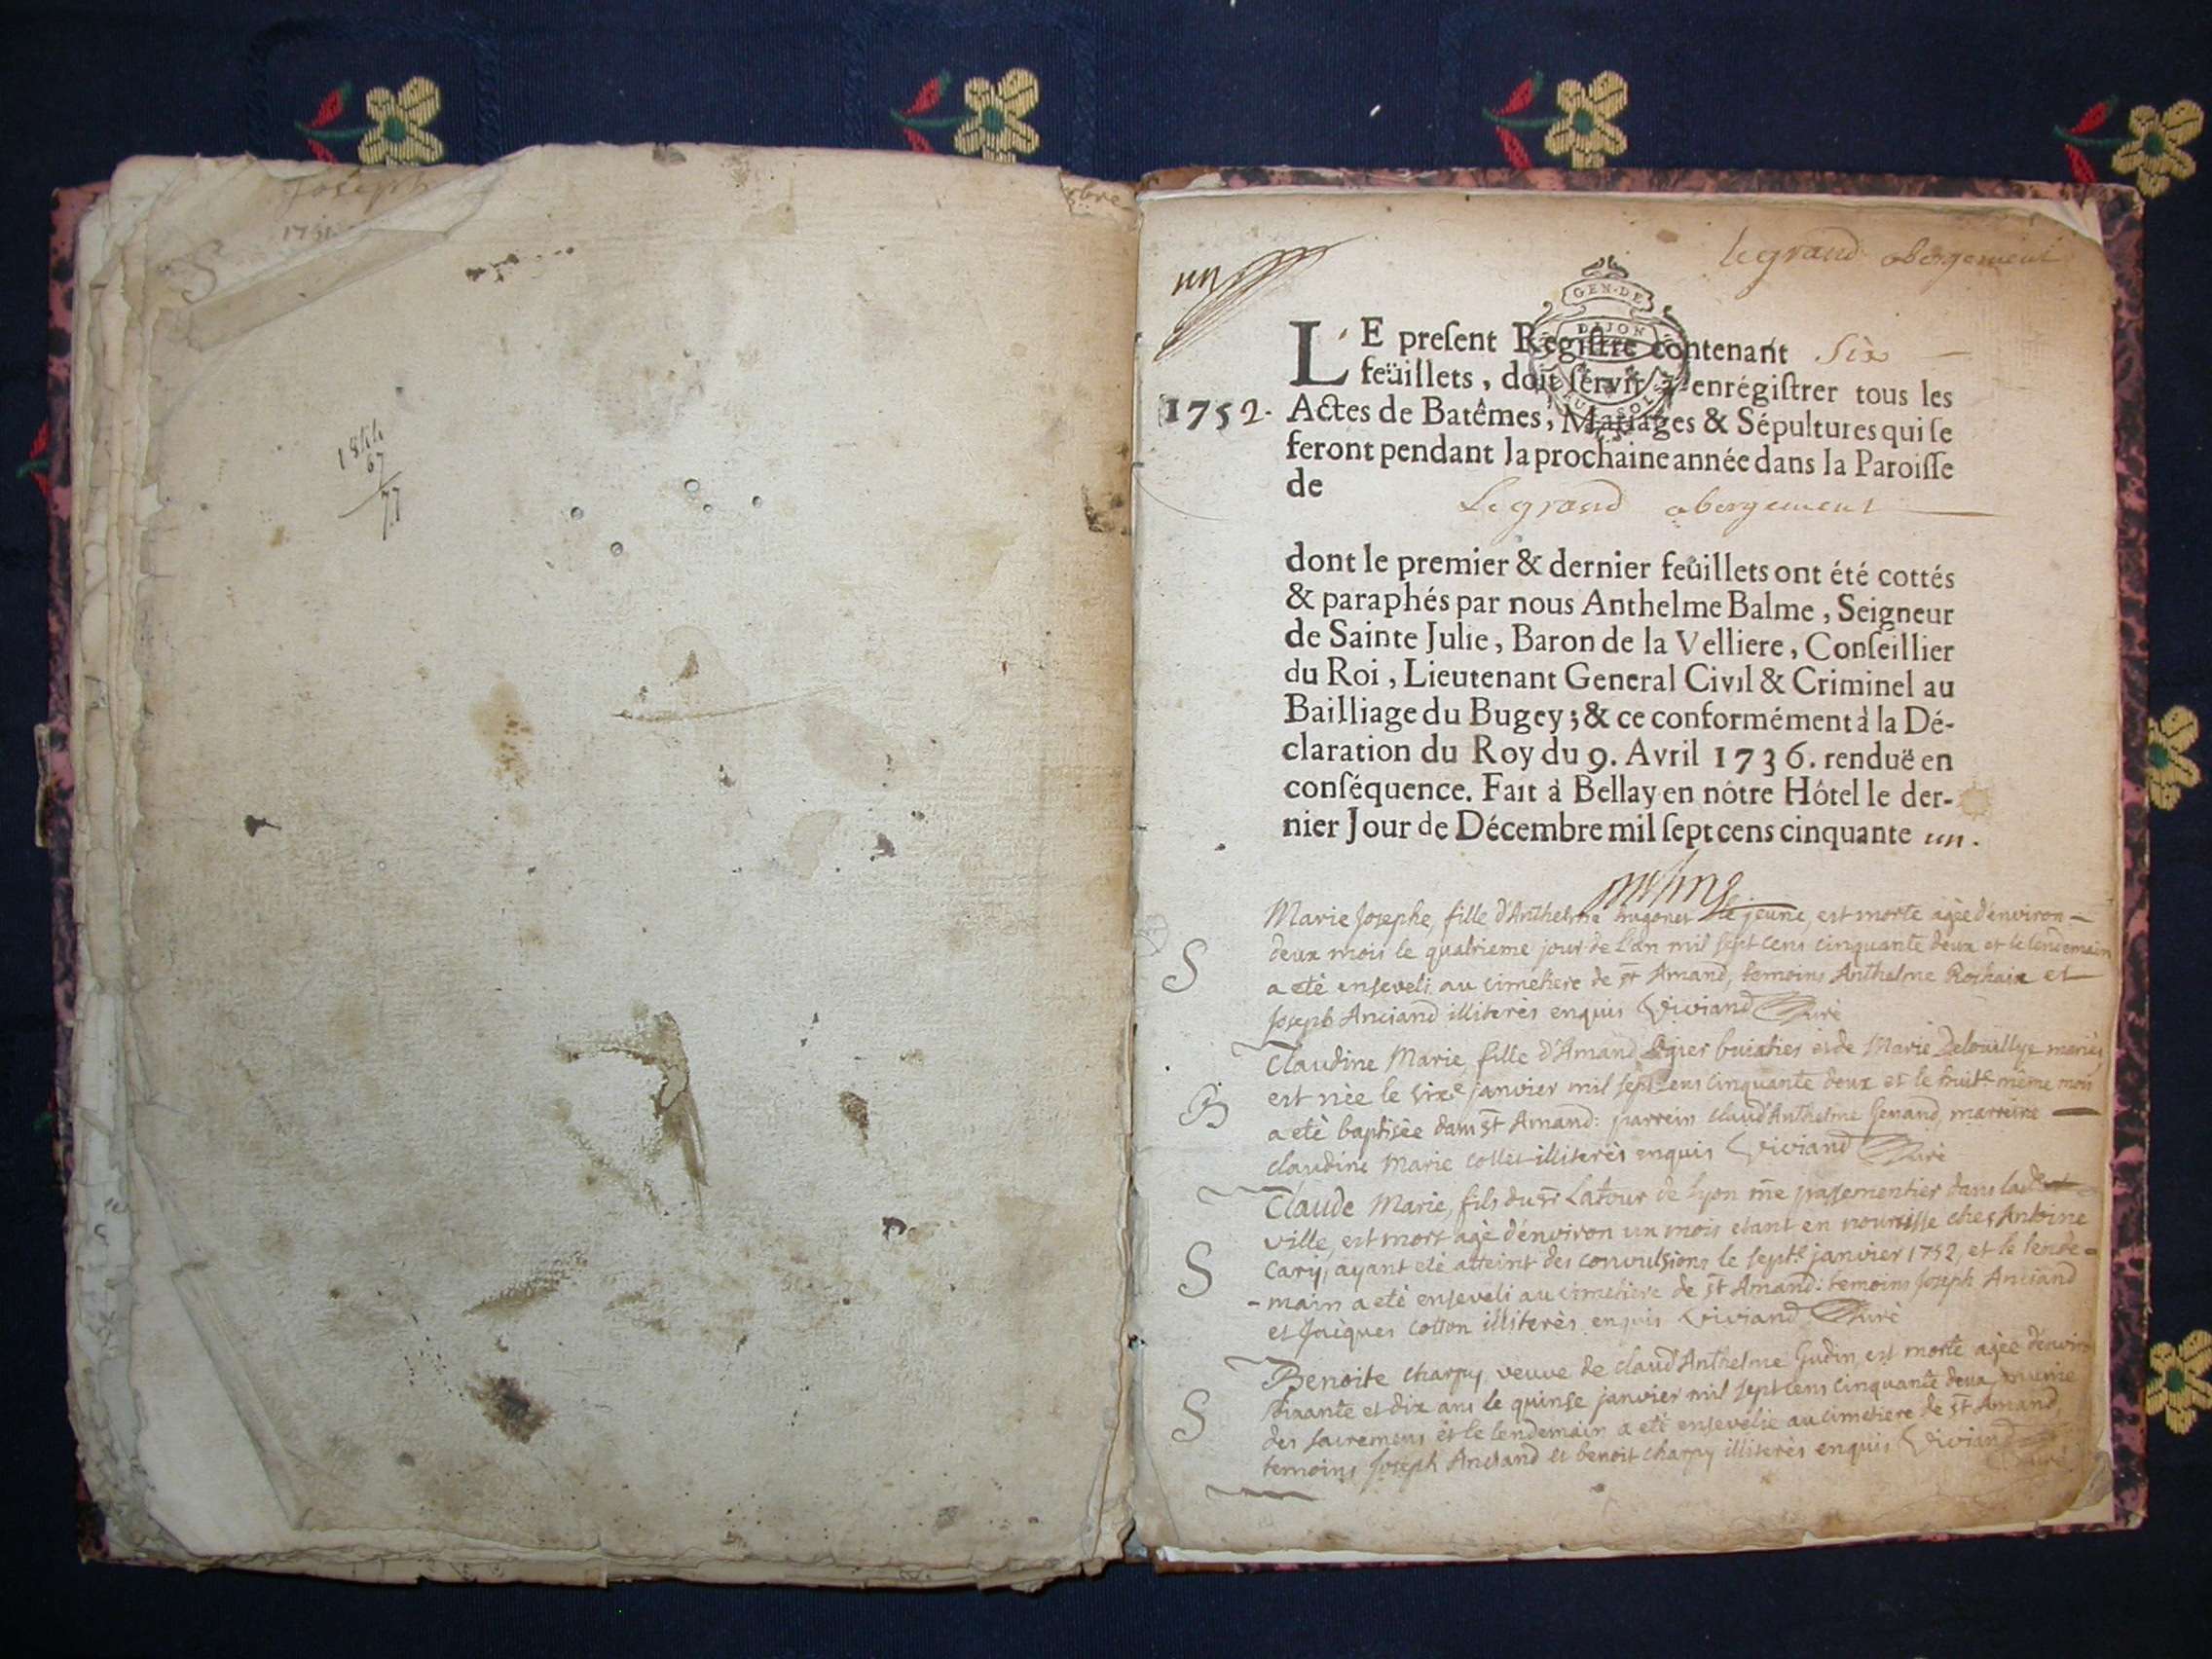 Joseph
1751
S
1844
67
77
bre
le grand abergement
un
GEN·DE
DIJON
LE preſent Regiſtre contenant Six
feüillets, doit ſervir à enrégiſtrer tous les
1752. Actes de Batêmes, Mariages & Sépultures qui ſe
feront pendant la prochaine année dans la Paroiſſe
de
Le grand abergement
dont le premier & dernier feüillets ont été cottés
& paraphés par nous Anthelme Balme, Seigneur
de Sainte Julie, Baron de la Velliere, Conſeillier
du Roi, Lieutenant General Civil & Criminel au
Bailliage du Bugey; & ce conformément à la Dé-
claration du Roy du 9. Avril 1736. renduë en
conſéquence. Fait à Bellay en nôtre Hôtel le der-
nier Jour de Décembre mil ſept cens cinquante un.
Marie Josephe, fille d'Anthelme hugonet le jeune, est morte agèe d'environ
deux mois le quatrieme jour de L'an mil sept cens cinquante deux et le lendemain
S a etè enseveli au cimetiere de st Amand, temoins Anthelme Rochaix et
Joseph Anciand illiterès enquis Viviand Curè
Claudine Marie, fille d'Amand buiatier et de Marie Delouillye mariès
est nèe le sixe janvier mil sept cens cinquante deux et le huite même mois
B a etè baptisèe dans st Amand: parrein claud'Anthelme Genand, marreine
claudine Marie collet illiterès enquis Viviand Curè
Claude Marie, fils du sr Latour de lyon me passementier dans lade
ville, est mort agè d'environ un mois etant en nourrisse ches Antoine
S Cary, ayant etè atteint des convulsions le septe janvier 1752, et le lende-
-main a etè enseveli au cimetiere de st Amand: temoins Joseph Anciand
et Jaiques Cotton illiterès enquis Viviand Curè
Benoite Charpy, veuve de claud'Anthelme Gudin, est morte agèe d'environ
S soixante et dix ans le quinse janvier mil sept cens cinquante deux, munie
des sacremens et le lendemain a etè ensevelie au cimetiere de st Amand,
temoins Joseph Anciand et benoit charpy illiterès enquis Viviand Curè